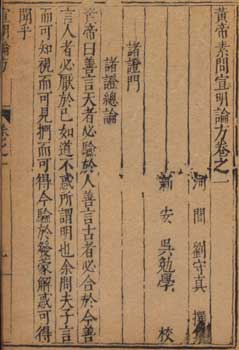 黃帝素問宣明論方卷之一
河間 劉守真 撰
新安 吳勉學 校
諸證門
諸證總論
黃帝曰善言天者必驗於人善言古者必合於今善
言人者必厭於已如道不惑所謂明也余問夫子言
而可知視而可見捫而可得令驗於發蒙解惑可得
聞乎
宣明論方 卷之一